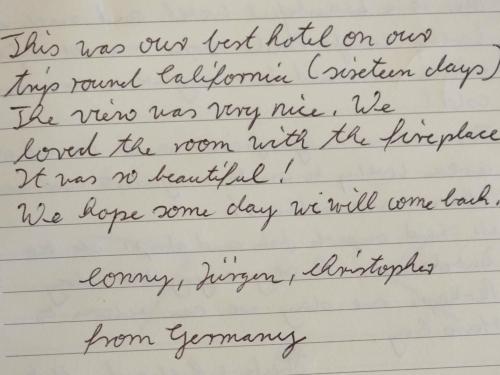 This was our best hotel on our
trip round California (sixteen days)
The view was very nice. We
loved the room with the fireplace
It was so beautiful!
We hope some day we will come back.
Conny, Jürgen, Christopher
from Germany